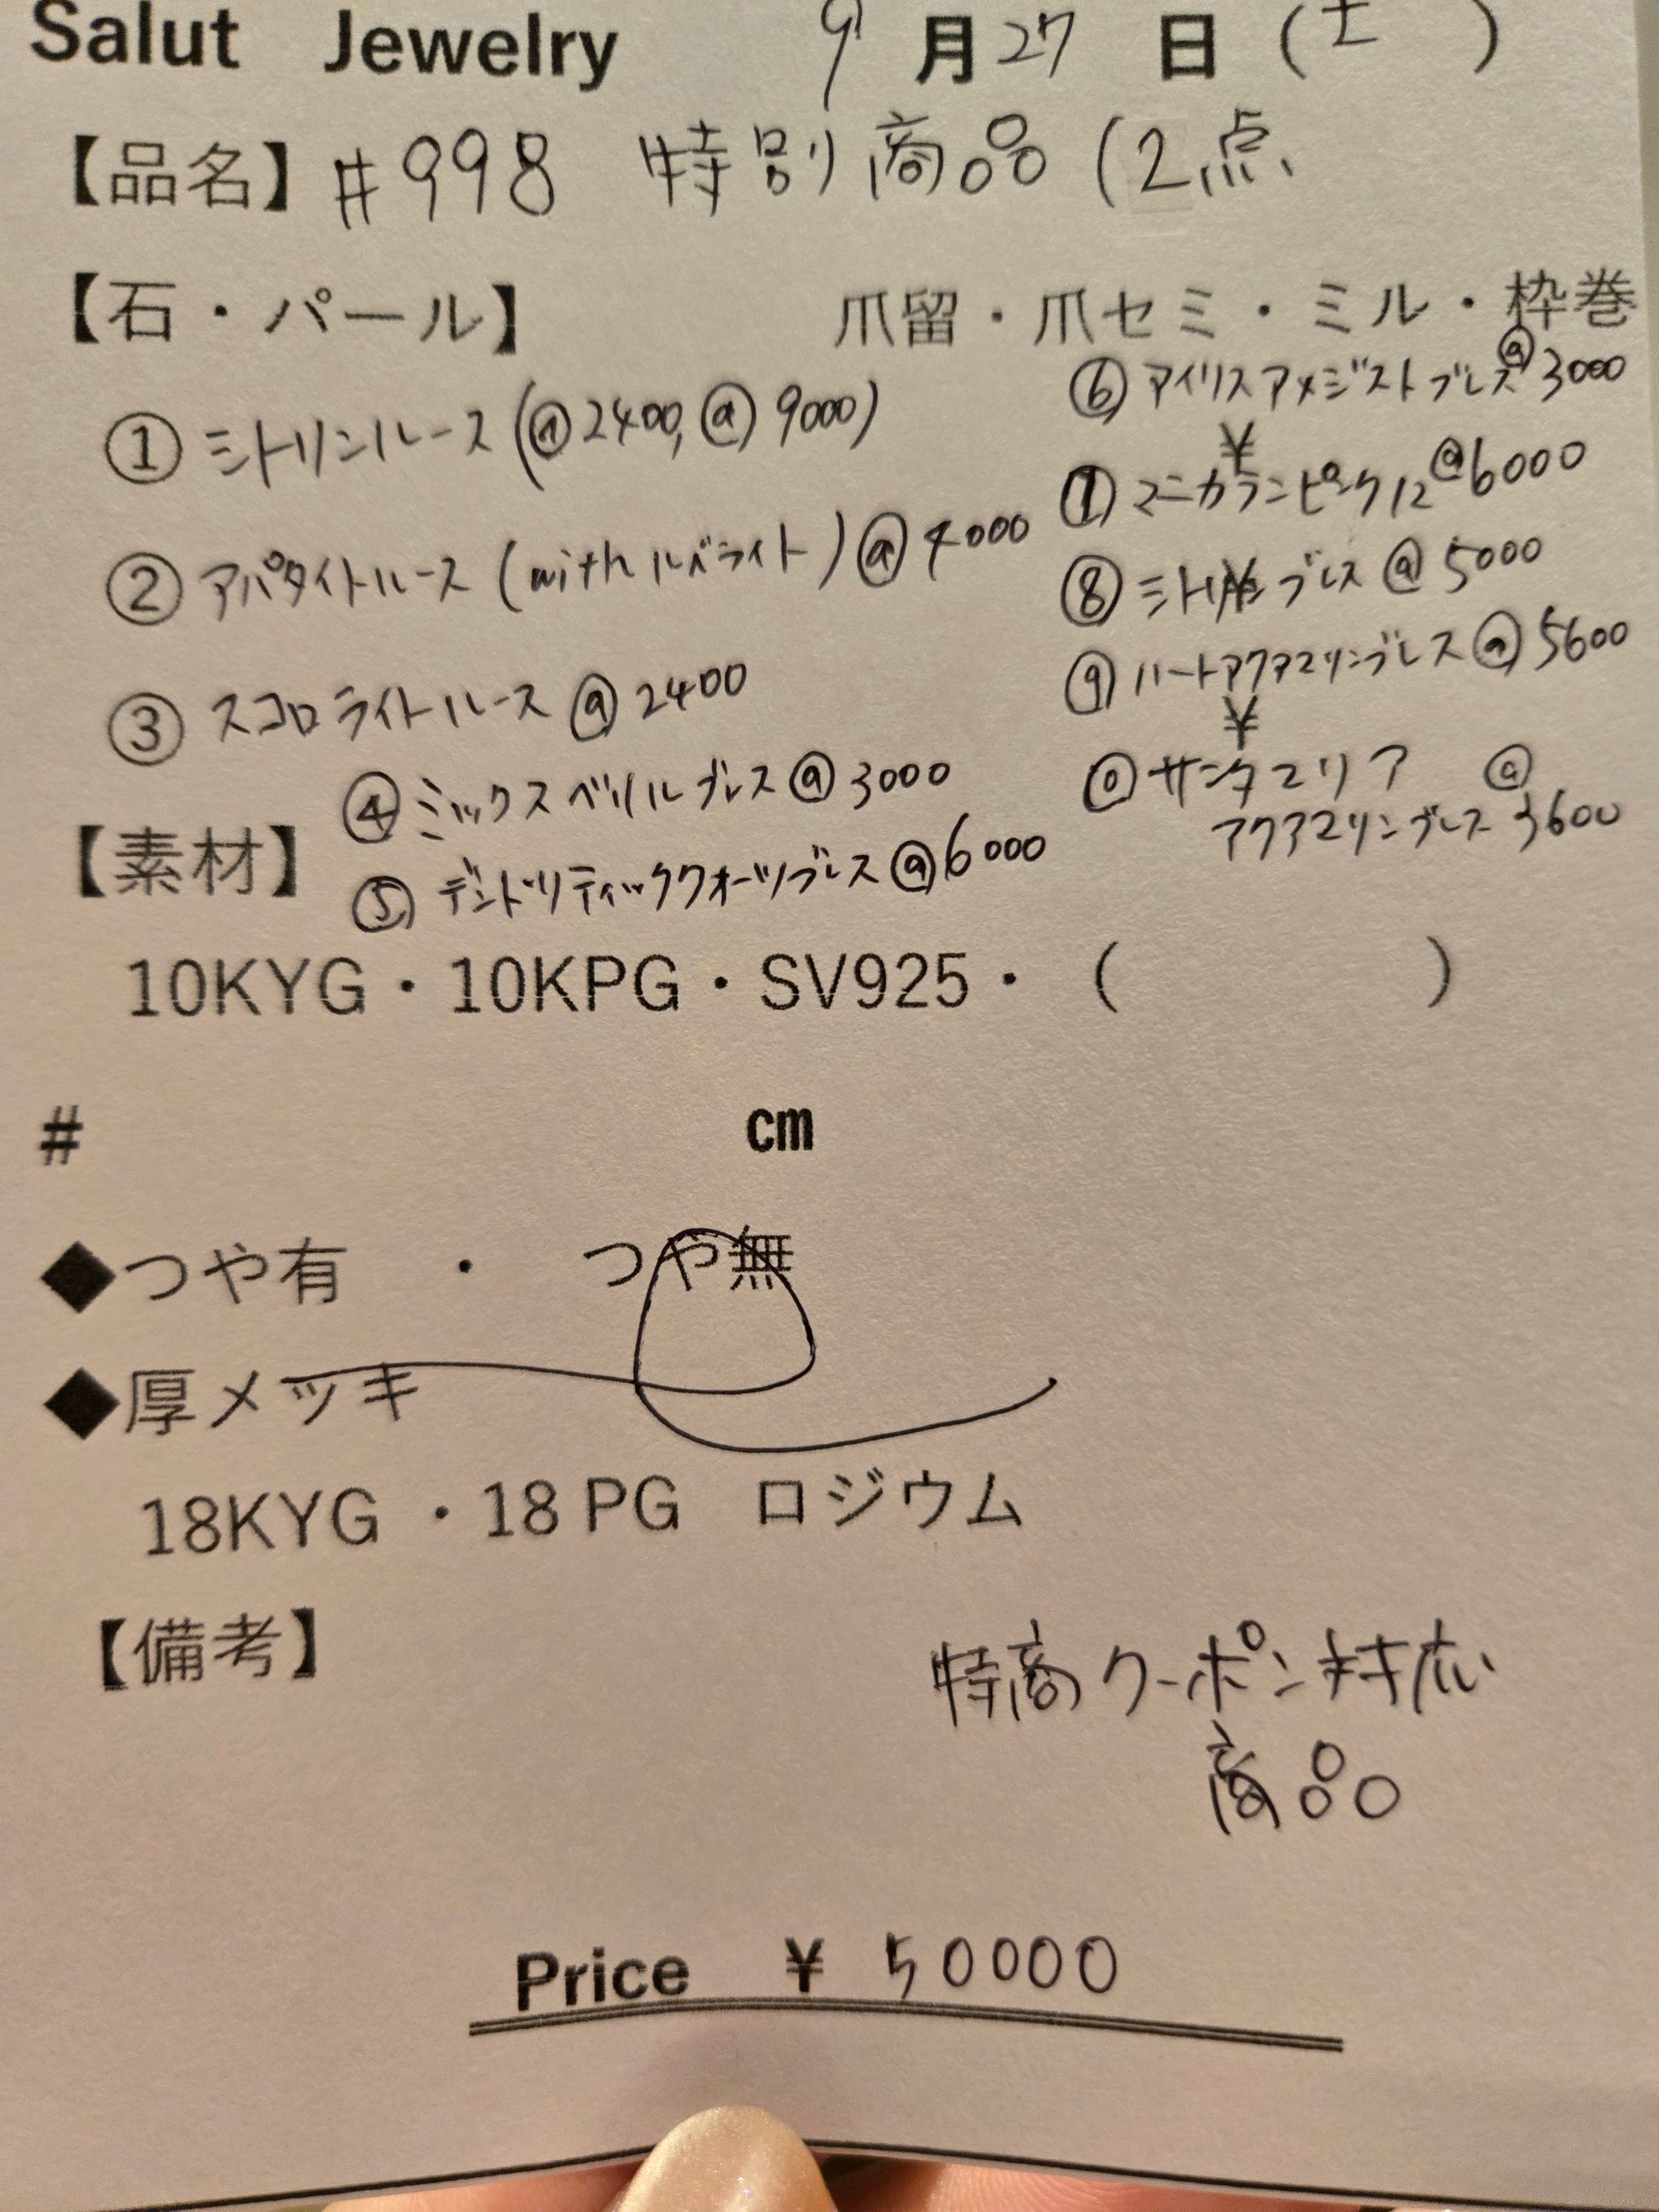 Salut Jewelry 9月27日(土)
【品名】#998 特別商品(2点
【石・パール】 爪留・爪セミ・ミル・枠巻
① ミトリンルース(@2400, @9000)
② アパタイトルース(withルベライト)@4000
③ スコロライトルース @2400
④ ミックスベリルブレス @3000
⑤ デンドリティッククォーツブレス @6000
⑥ アイリスアメジストブレス @3000
¥
⑦ マニカランピンク12 @6000
⑧ ミトリンブレス @5000
¥
⑨ ハートアクアマリンブレス @5600
¥
⓪ サンタマリア @
アクアマリンブレス 3600
【素材】
10KYG・10KPG・SV925・( )
# cm
◆つや有 ・ つや無
◆厚メッキ
18KYG ・18PG ロジウム
【備考】
特商クーポン対応
商品
Price ¥ 50000